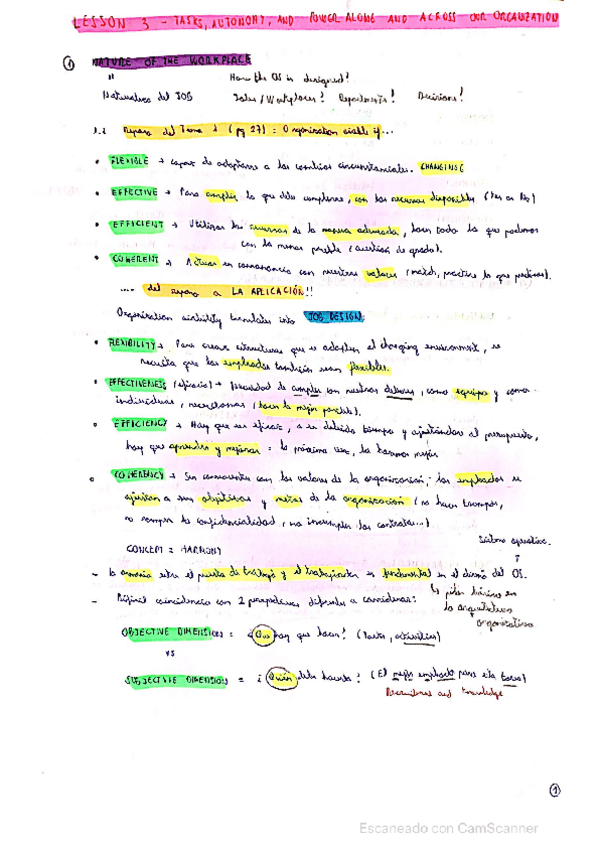 LESSON 3 - TASKS, AUTONOMY, AND POWER ALONE AND ACROSS OUR ORGANIZATION
1 NATURE OF THE WORKPLACE
" How the OS is designed?
Naturaleza del JOB Jobs / Workplaces? Departments? Decisions?
1.1 Repaso del Tema 1 (pg 27) = Organization viable if...
• FLEXIBLE → capaz de adaptarse a los cambios circunstanciales. CHANGING
• EFFECTIVE → Para cumplir lo que debe cumplirse, con los recursos disponibles (Yes or No)
• EFFICIENT → Utilizar los recursos de la manera adecuada, hacer todo lo que podamos
con lo menos posible (cuestión de grado).
• COHERENT → Actuar en consonancia con nuestros valores (match, practice lo que).
.... del repaso a LA APLICACIÓN!!
Organization viability translates into JOB DESIGN:
• FLEXIBILITY → Para crear estructuras que se adapten al changing environment, se
necesita que los empleados también sean flexibles.
• EFFECTIVENESS (eficacia) → necesidad de cumplir con nuestros deberes, como equipo y como
individuos, (hacer lo mejor posible).
• EFFICIENCY → Hay que ser eficaz, a su debido tiempo y ajustándose al presupuesto,
hay que aprender y mejorar = la próxima vez, lo haremos mejor
• COHERENCY → Ser consecuentes con los valores de la organización; los empleados se
ajustan a sus objetivos y metas de la organización (no hacer trampas,
no romper la confidencialidad, no incumplir los contratos...)
CONCEPT = HARMONY
Sistema operativo.
↑
- La armonía entre el puesto de trabajo y el trabajador es fundamental en el diseño del OS.
↳ pilar básico en
la arquitectura
organizativa
- coincidencia con 2 perspectivas diferentes a considerar:
OBJECTIVE DIMENSION = ¿Qué hay que hacer? (Tasks, activities)
vs
SUBJECTIVE DIMENSION = ¿Quién debe hacerlo? (El mejor empleado para esta tarea)
and knowledge
1
Escaneado con CamScanner